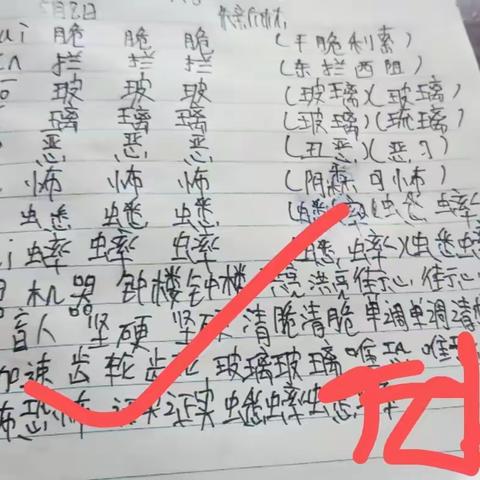 5月2日
脆 脆 脆 (干脆利索)
拦 拦 拦 (东拦西阻)
玻 玻 玻 (玻璃)(玻璃)
璃 璃 璃 (玻璃)(琉璃)
恶 恶 恶 (丑恶)(恶习)
怖 怖 怖 (阴森可怖)
蟋 蟋 蟋 (蟋蟀)(蟋蟀
蟀 蟀 蟀 蟋蟀)(蟋蟀
机器 钟楼钟楼 洪亮
盲人 坚硬 坚硬 清脆清脆 单调单调清
加速 齿轮齿 玻璃玻璃 唯恐 唯恐
怖恐怖 证实证实 蟋蟀蟋蟀